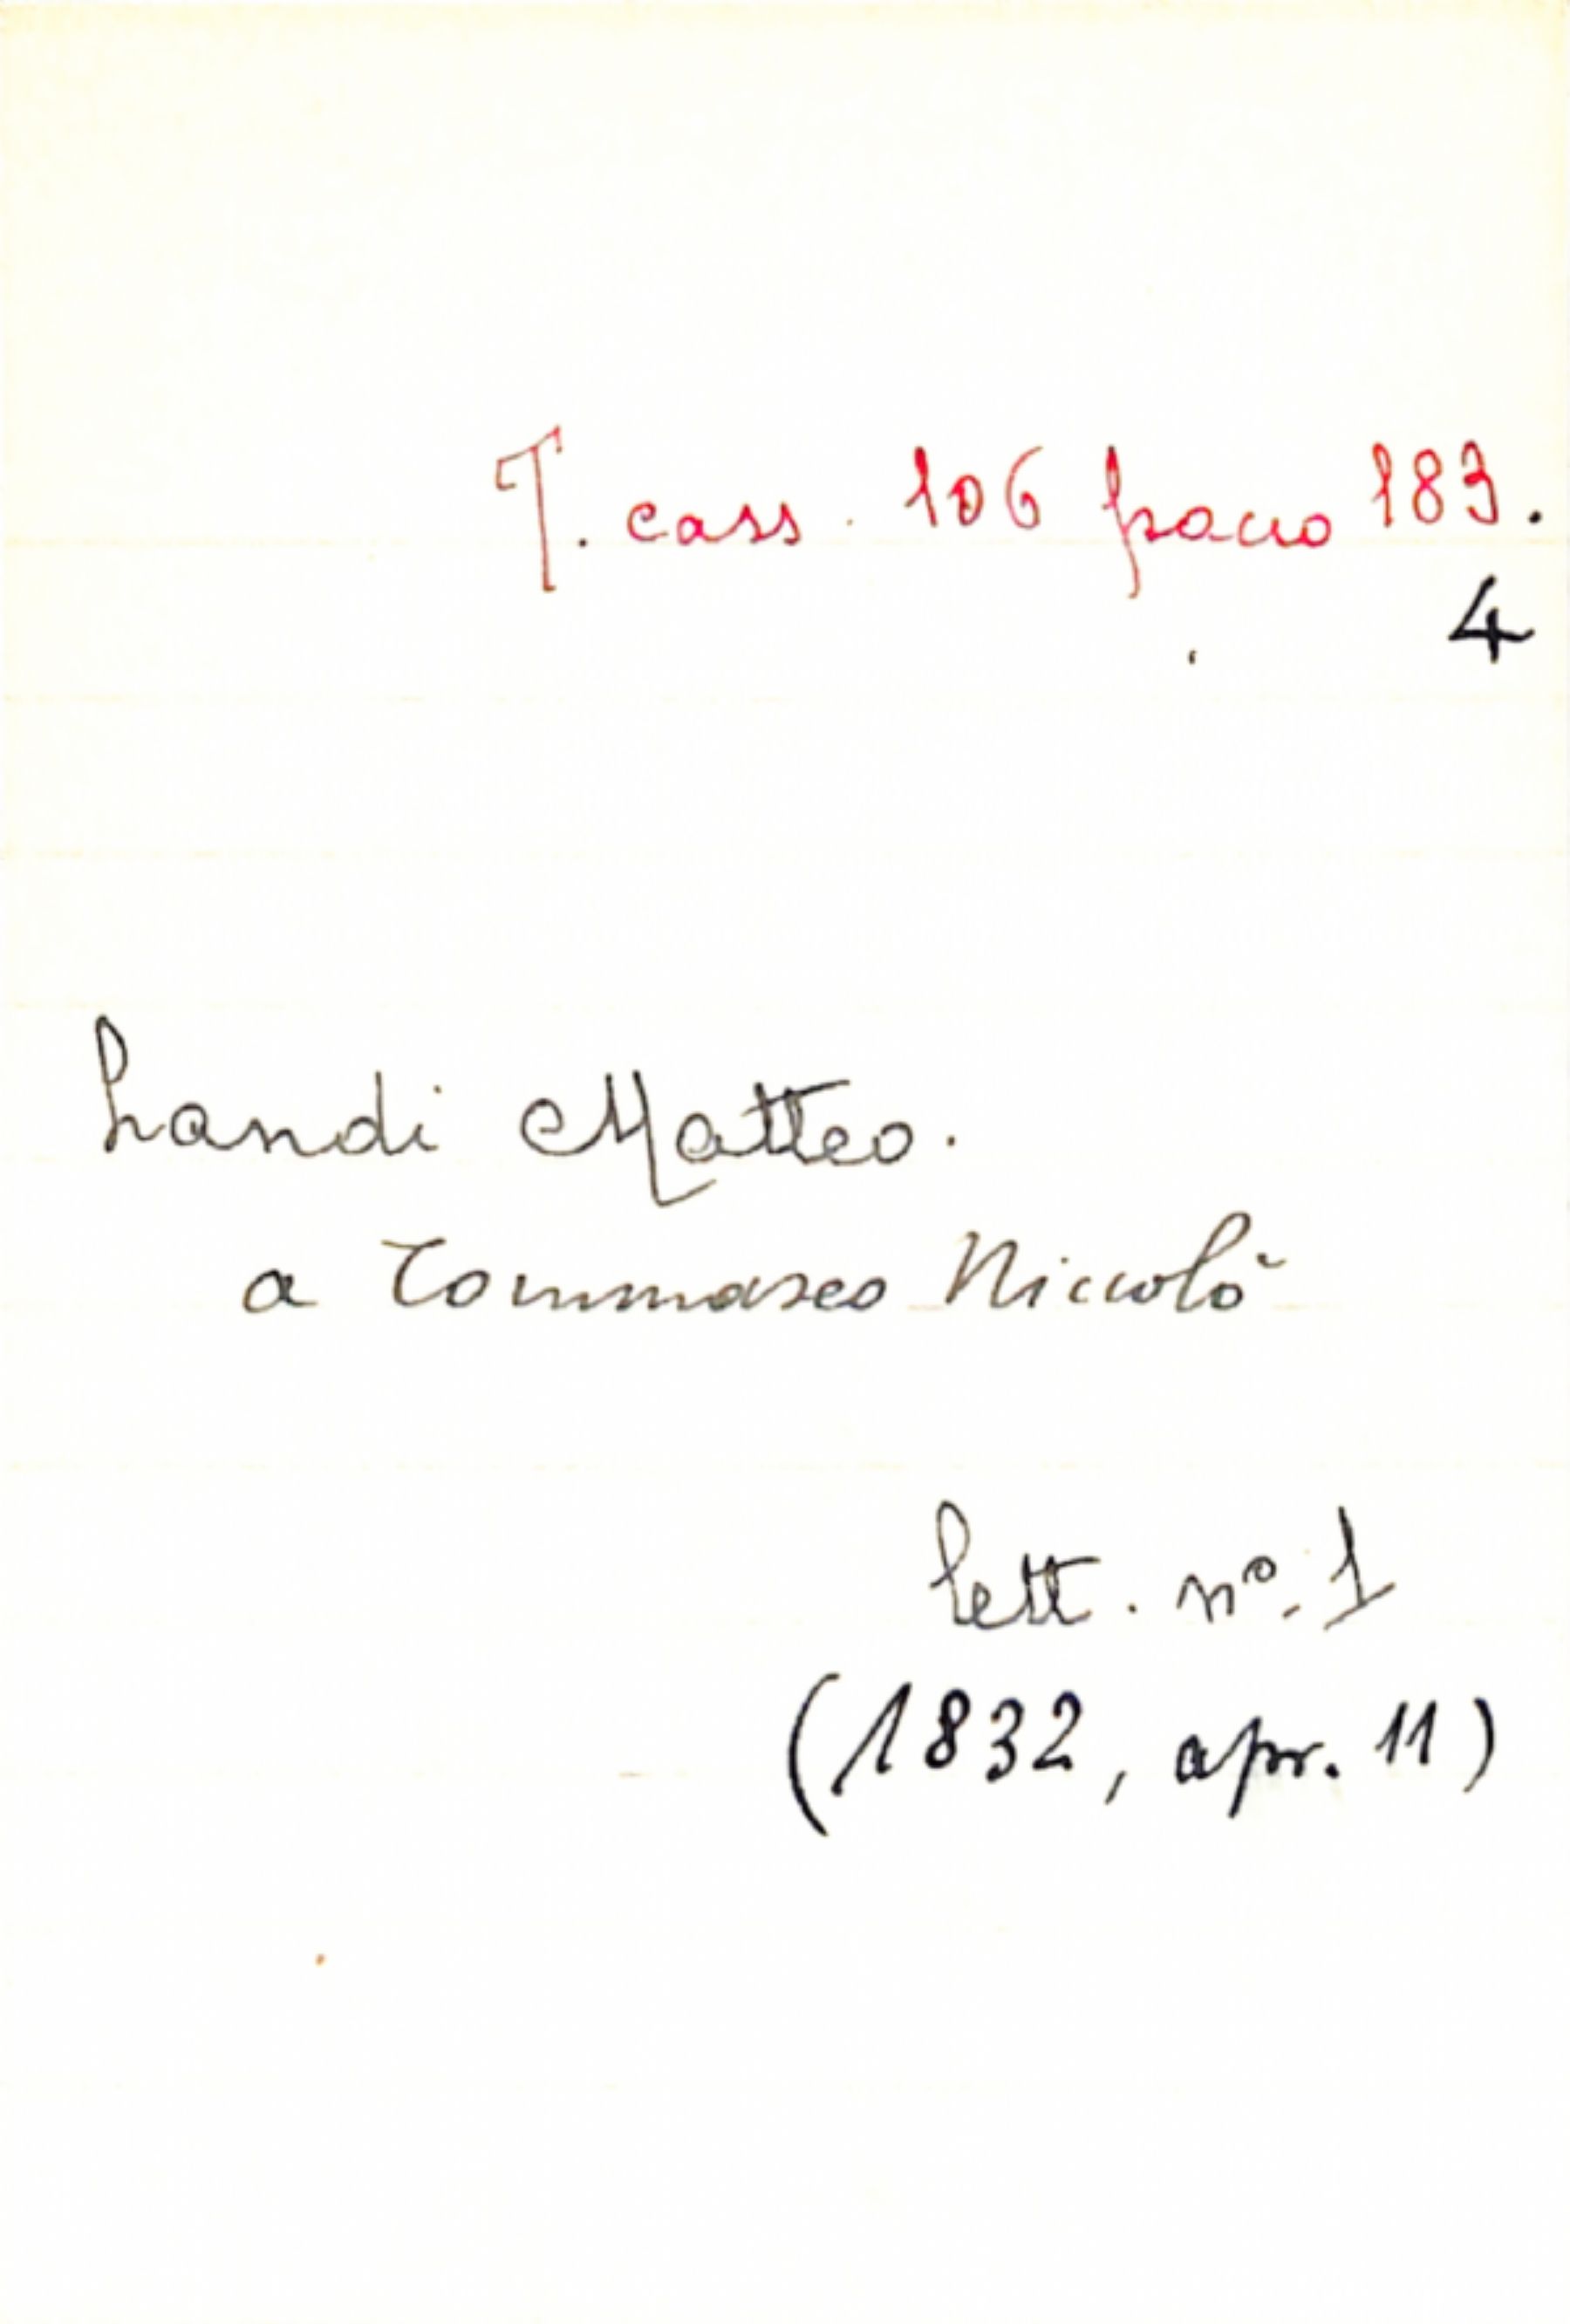 T. cass. 106 pacco 183.
4
Landi Matteo.
a Tommaseo Niccolò
lett. nº. 1
(1832, apr. 11)